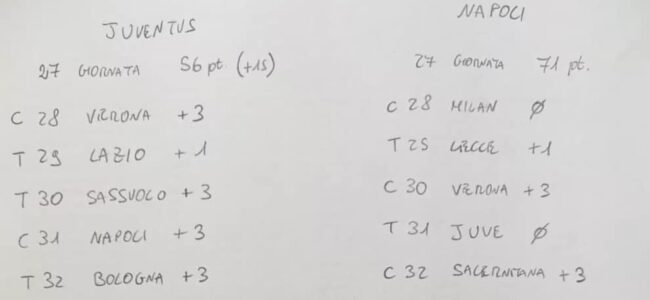 JUVENTUS
27 GIORNATA 56 pt. (+15)
C 28 VERONA +3
T 29 LAZIO +1
T 30 SASSUOLO +3
C 31 NAPOLI +3
T 32 BOLOGNA +3
NAPOLI
27 GIORNATA 71 pt.
C 28 MILAN Ø
T 29 LECCE +1
C 30 VERONA +3
T 31 JUVE Ø
C 32 SALERNITANA +3